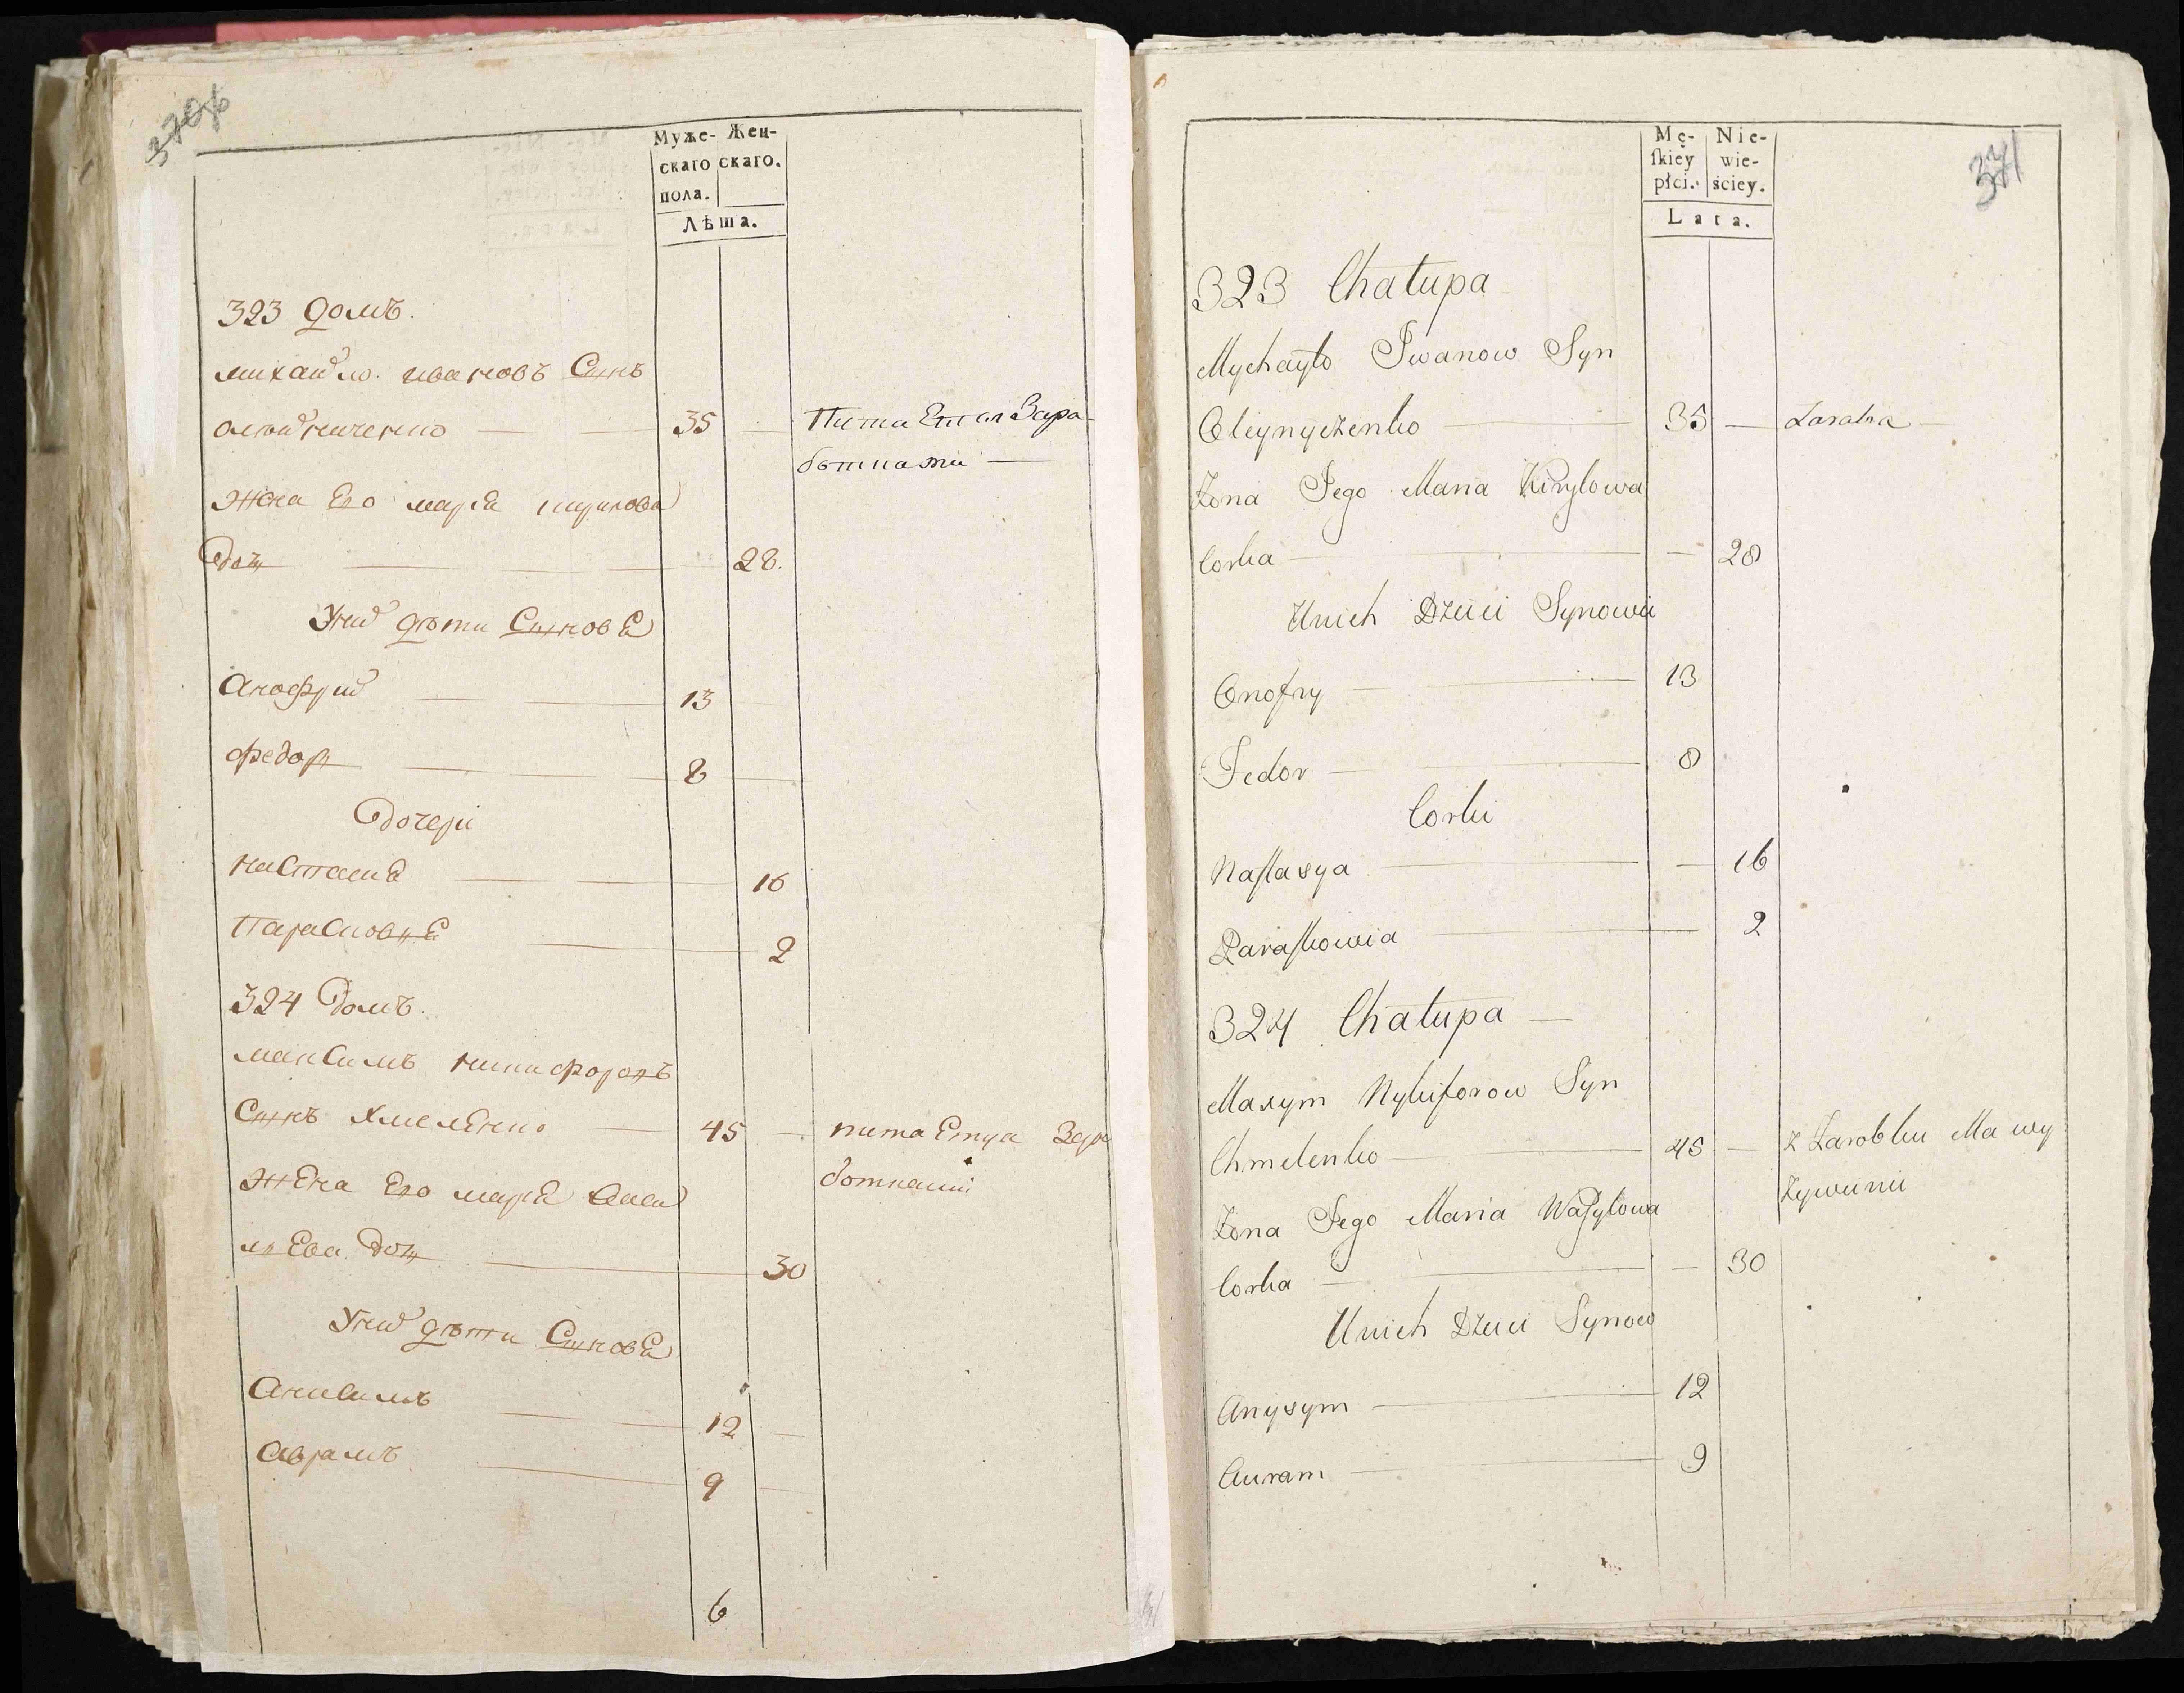 370б
Муже- Жен-
скаго скаго.
пола.
Лѣта.
323 домъ.
михайло ивановъ Сынъ
олейниченко 35 Питаетъся Зара-
ботками
жена Его марія кирилова
дочь 28.
У них дѣти Сыновя
Анофрий 13
федоръ 8
дочери
настасия 16
Парасковия 2
324 домъ.
максимъ никифоровъ
Сынъ Хмеленко 45 питаетця Зара
ботками
жена Его марія васи
лева дочь 30
У них дѣти Сыновя
Анисимъ 12
Аврамъ 9
6
371
Mę- Nie-
skiey wie-
płci. ściey.
Lata.
323 Chałupa
Mychayło Iwanow Syn
Oleynyczenko 35 Zarabia
Żona Jego Maria Kiryłowa
Corka 28
U nich Dzieci Synowie
Onofry 13
Fedor 8
Corki
Nastasya 16
Paraskowia 2
324 Chałupa
Maxym Nykiforow Syn
Chmelenko 45 z Zarobku Ma wy
żywienie
Żona Jego Maria Wasylowa
Corka 30
U nich Dzieci Synow
Anysym 12
Auram 9